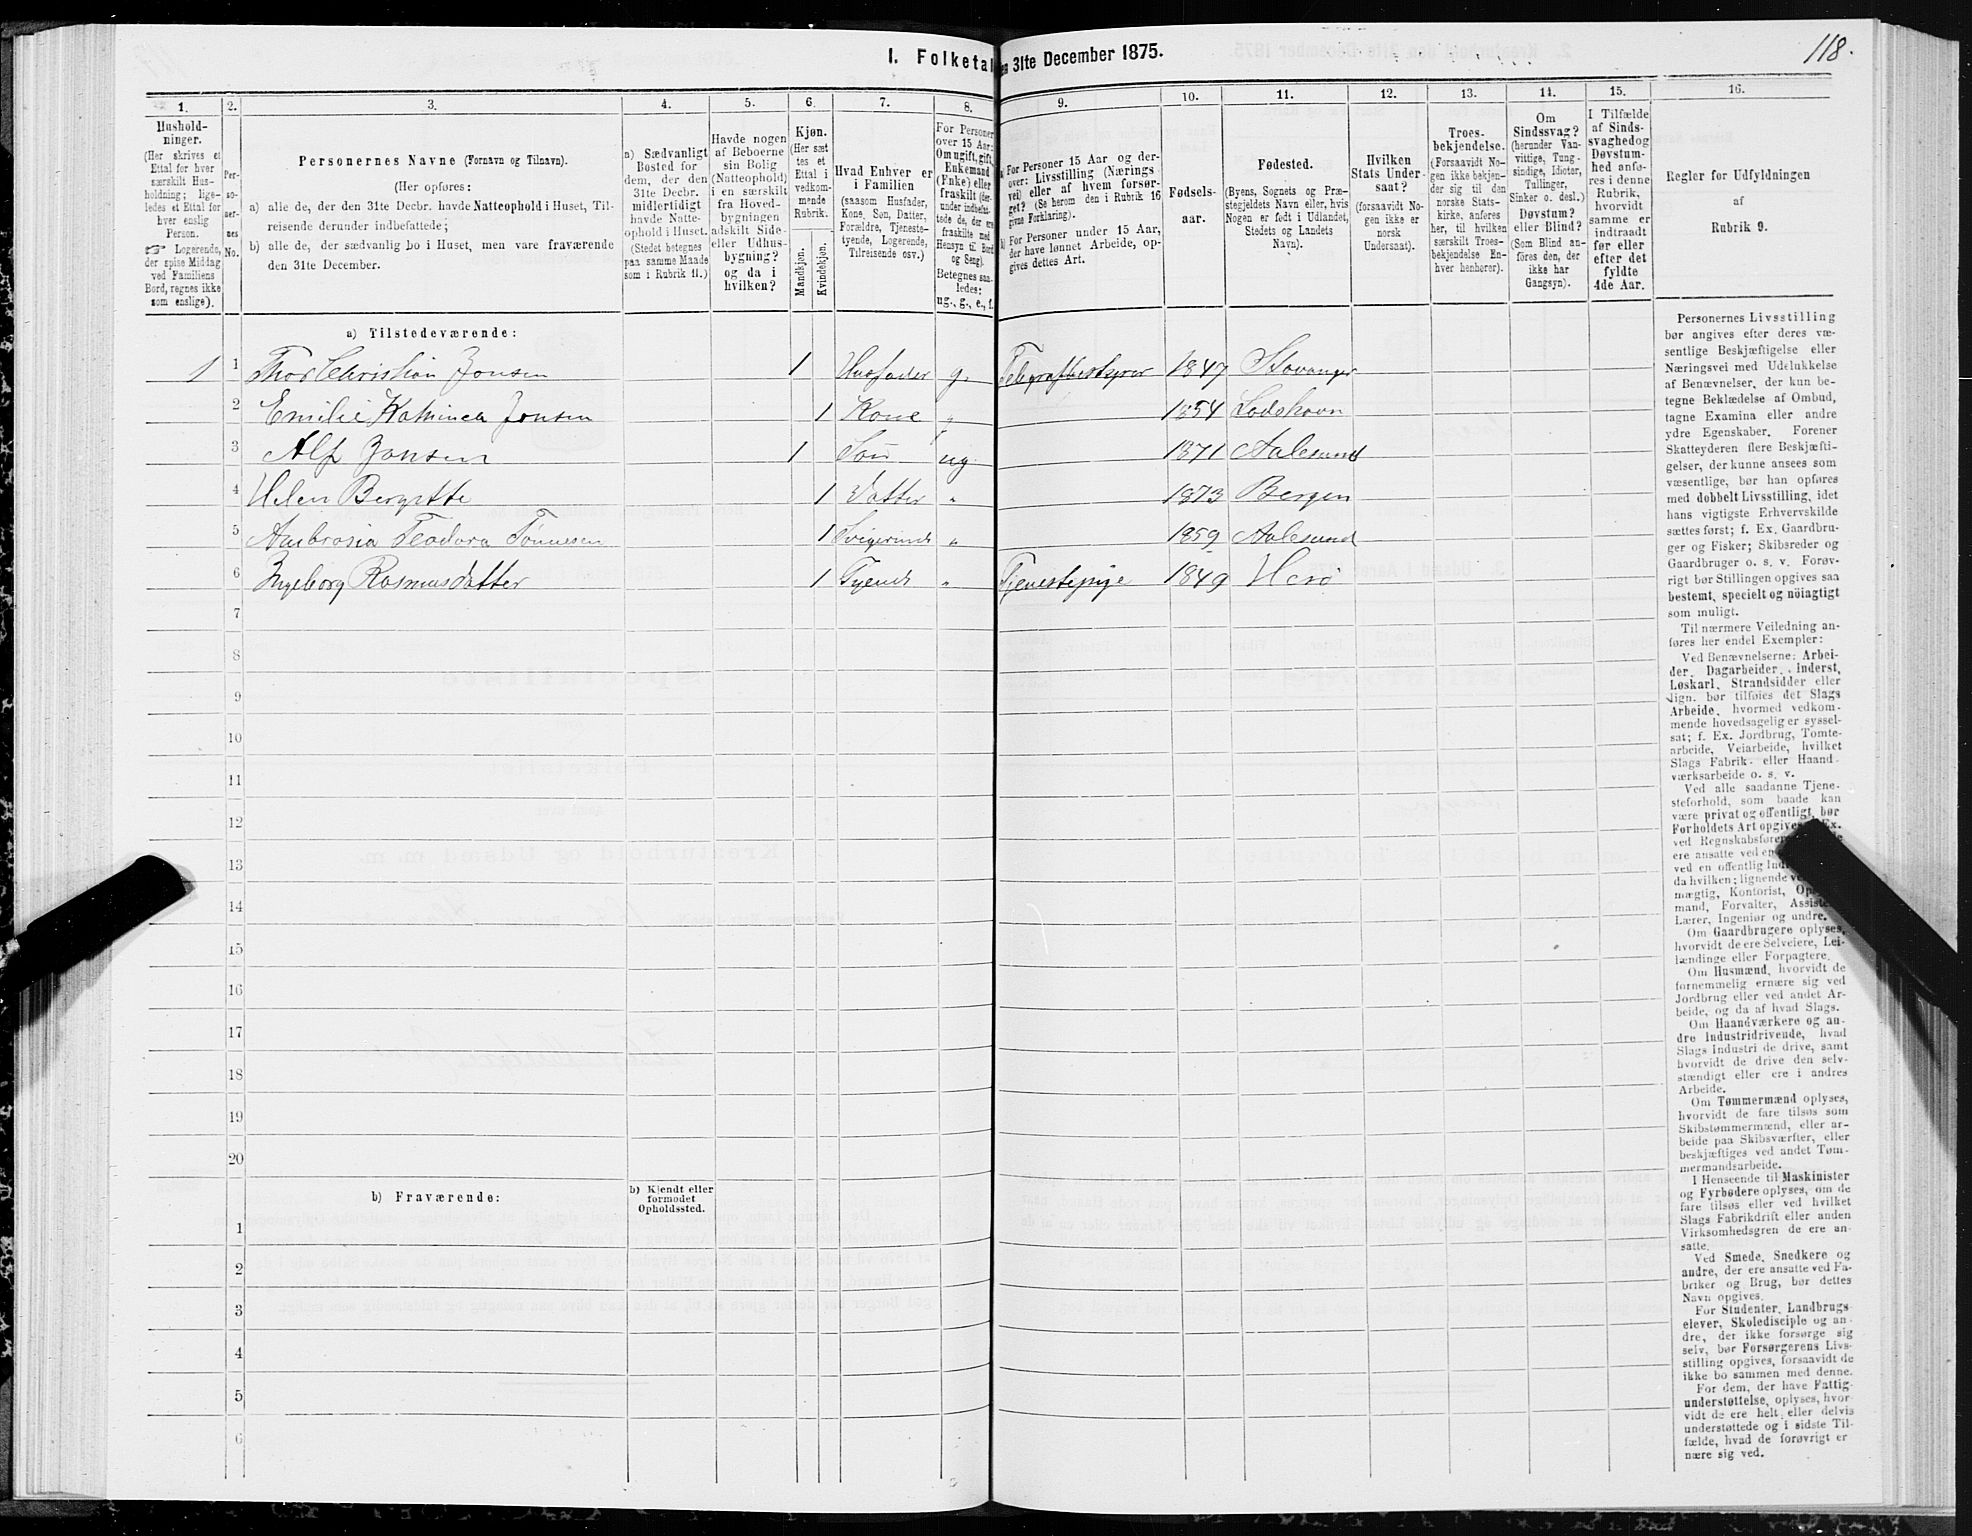 118.
I. Folketal den 31te December 1875.
1. 2. 3. 4. 5. 6. 7. 8. 9. 10. 11. 12. 13. 14. 15. 16.
Hushold-
ninger.
(Her skrives et
Ettal for hver
særskilt Hus-
holdning; lige-
ledes et Ettal for
hver enslig
Person.
☞ Logerende,
der spise Middag
ved Familiens
Bord, regnes ikke
som enslige).
Per-
so-
ner-
nes
No.
Personernes Navne (Fornavn og Tilnavn).
(Her opføres:
a) alle de, der den 31te Decbr. havde Natteophold i Huset, Til-
reisende derunder indbefattede;
b) alle de, der sædvanlig bo i Huset, men vare fraværende
den 31te December.
a) Sædvanligt
Bosted for
dem, der den
31te Decbr.
midlertidigt
havde Natte-
ophold i Huset.
(Stedet betegnes
paa samme Maade
som i Rubrik 11.)
Havde nogen
af Beboerne
sin Bolig
(Natteophold)
i en særskilt
fra Hoved-
bygningen
adskilt Side-
eller Udhus-
bygning?
og da i
hvilken?
Kjøn.
(Her sæt
tes et
Ettal i
vedkom-
mende
Rubrik.
Mandkjøn.
Kvindekjøn.
Hvad Enhver er
i Familien
(saasom Husfader,
Kone, Søn, Datter,
Forældre, Tjeneste-
tyende, Logerende,
Tilreisende osv.)
For Personer
over 15 Aar:
Om ugift, gift,
Enkemand
(Enke) eller
fraskilt (der-
under indbefat-
tede de, der ere
fraskilte med
Hensyn til Bord
og Seng).
Betegnes saa-
ledes:
ug., g., e., f.
a) For Personer 15 Aar og der-
over: Livsstilling (Nærings
vei) eller af hvem forsør-
get? (Se herom den i Rubrik 16
givne Forklaring).
b) For Personer under 15 Aar,
der have lønnet Arbeide, op-
gives dettes Art.
Fødsels-
aar.
Fødested.
(Byens, Sognets og Præ-
stegjeldets Navn eller, hvis
Nogen er født i Udlandet,
Stedets og Landets
Navn).
Hvilken
Stats Under-
saat?
(forsaavidt No-
gen ikke er
norsk
Undersaat).
Troes-
bekjendelse.
(Forsaavidt No-
gen ikke bekjen-
der sig til den
norske Stats-
kirke, anføres
her, til hvilken
særskilt Troes-
bekjendelse En-
hver henhører).
Om
Sindssvag?
(herunder Van-
vittige, Tung-
sindige, Idioter,
Tullinger,
Sinker o. desl.)
Døvstum?
eller Blind?
(Som Blind an-
føres den, der
ikke har
Gangsyn).
I Tilfælde
af Sinds-
svaghed og
Døvstum-
hed anfø-
res i denne
Rubrik,
hvorvidt
samme er
indtraadt
før eller
efter det
fyldte
4de Aar.
Regler for Udfyldningen
af
Rubrik 9.
a) Tilstedeværende:
1 1 Thor Christian Jonsen 1 Husfader g. Telegrafbestyrer 1847 Stavanger
2 Emilie Kathinca Jonsen 1 Kone „ 1854 Lodshavn
3 Alf Jonsen 1 Søn ug. 1871 Aalesund
4 Helen Bergitte 1 Datter „ 1873 Bergen
5 Ambrosia Teodora Tønnesen 1 „ 1859 Aalesund
6 Ingeborg Rasmusdatter 1 Tyende „ Tjenestepige 1849 Herø
7
8
9
10
11
12
13
14
15
16
17
18
19
20
b) Fraværende:
b) Kjendt eller
formodet
Opholdssted.
1
2
3
4
5
6
Personernes Livsstilling
bør angives efter deres væ-
sentlige Beskjæftigelse eller
Næringsvei med Udelukkelse
af Benævnelser, der kun be-
tegne Beklædelse af Ombud,
tagne Examina eller andre
ydre Egenskaber. Forener
Skatteyderen flere Beskjæfti-
gelser, der kunne ansees som
væsentlige, bør han opføres
med dobbelt Livsstilling, idet
hans vigtigste Erhvervskilde
sættes først; f. Ex. Gaardbru-
ger og Fisker; Skibsreder og
Gaardbruger o. s. v. Forøv-
rigt bør Stillingen opgives saa
bestemt, specielt og nöiagtigt
som muligt.
Til nærmere Veiledning an-
føres her endel Exempler:
Ved Benævnelserne: Arbei-
der, Dagarbeider, Inderst,
Løskarl, Strandsidder eller
lign. bør tilføies det Slags
Arbeide, hvormed vedkom-
mende hovedsagelig er syssel-
sat; f. Ex. Jordbrug, Tomte-
arbeide, Veiarbeide, hvilket
Slags Fabrik- eller Haand-
værksarbeide o. s. v.
Ved alle saadanne Tjene-
steforhold, som baade kan
være privat og offentligt, bør
Forholdets Art opgives Ex.
ved Regnskabsførere
ere ansatte ved en
ved en offentlig
da hvilken; lignende
mægtig, Kontorist,
mand, Forvalter,
Lærer, Ingeniør og andre.
Om Gaardbrugere oplyses,
hvorvidt de ere Selveiere, Lei-
lændinge eller Forpagtere.
Om Husmænd, hvorvidt de
fornemmelig ernære sig ved
Jordbrug eller ved andet Ar-
beide, og da af hvad Slags.
Om Haandværkere og an-
dre Industridrivende, hvad
Slags Industri de drive, samt
hvorvidt de drive den selv-
stændigt eller ere i andres
Arbeide.
Om Tømmermænd oplyses,
hvorvidt de fare tilsøs som
Skibstømmermænd, eller ar-
beide paa Skibsværfter, eller
beskjæftiges ved andet Tøm-
mermandsarbeide.
I Henseende til Maskinister
og Fyrbødere oplyses, om de
fare tilsøs eller ved hvilket
Slags Fabrikdrift eller anden
Virksomhedsgren de ere an-
satte.
Ved Smede, Snedkere og
andre, der ere ansatte ved Fa-
briker og Brug, bør dettes
Navn opgives.
For Studenter, Landbrugs-
elever, Skoledisciple og an-
dre, der ikke forsørge sig
selv, bør Forsørgerens Livs-
stilling opgives, forsaavidt de
ikke bo sammen med denne.
For dem, der have Fattig-
understøttelse, oplyses, hvor-
vidt de ere helt eller delvis
understøttede og i sidste Til-
fælde, hvad de forøvrigt er
nære sig ved.